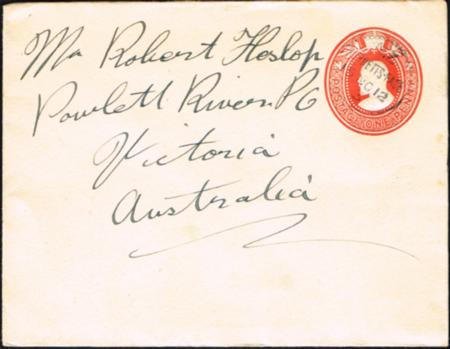 Mr Robert Heslop
Powlett River P.O
Victoria
Australia
POSTAGE ONE PENNY